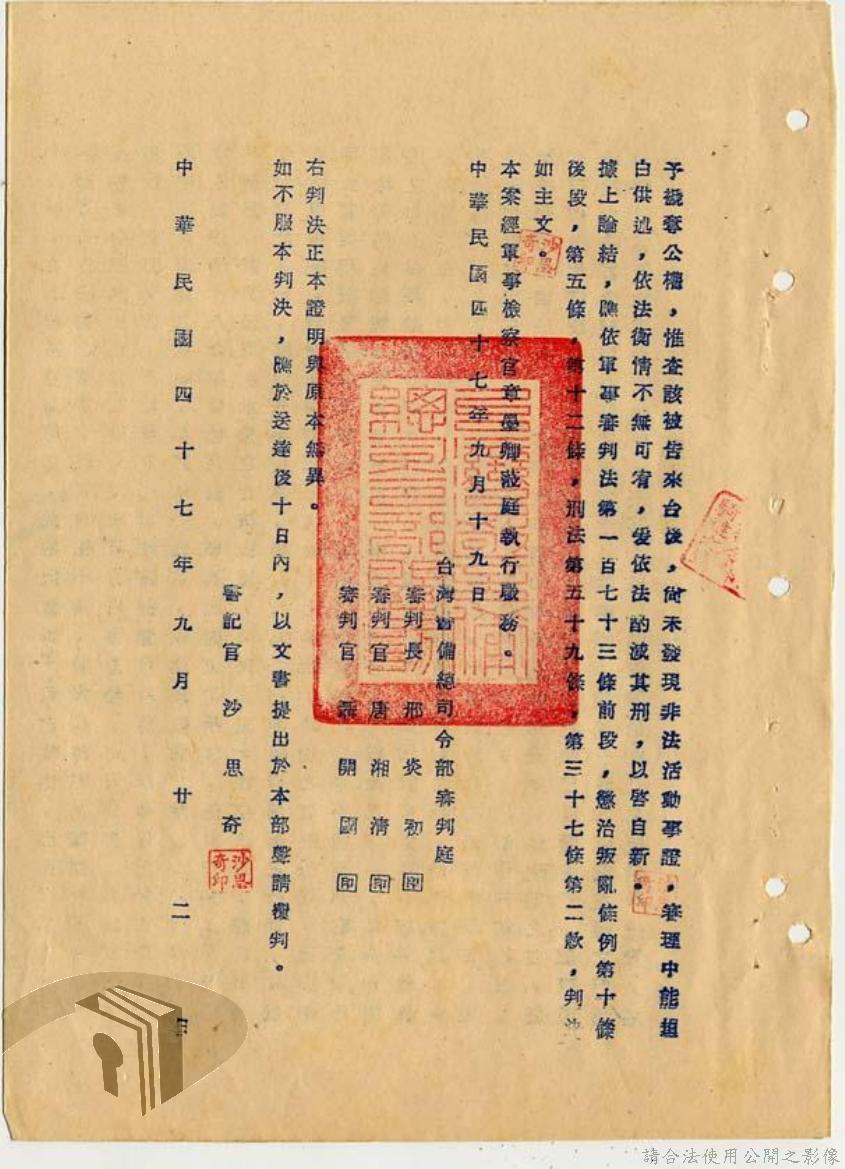 予褫奪公權，惟查該被告來台後，尚未發現非法活動事證，審理中能坦
白供述，依法衡情不無可宥，爰依法酌減其刑，以啓自新。
據上論結，應依軍事審判法第一百七十三條前段，懲治叛亂條例第十條
後段，第五條，第十二條，刑法第五十九條，第三十七條第二款，判決
如主文。
本案經軍事檢察官章墨卿蒞庭執行職務。
中華民國四十七年九月十九日
台灣警備總司令部審判庭
審判長 邢炎初 印
審判官 唐湘清 印
審判官 開國 印
右判決正本證明與原本無異。
如不服本判決，應於送達後十日內，以文書提出於本部聲請覆判。
書記官 沙思奇
沙思奇印
中華民國四十七年九月廿二日
沙思奇印
請合法使用公開之影像